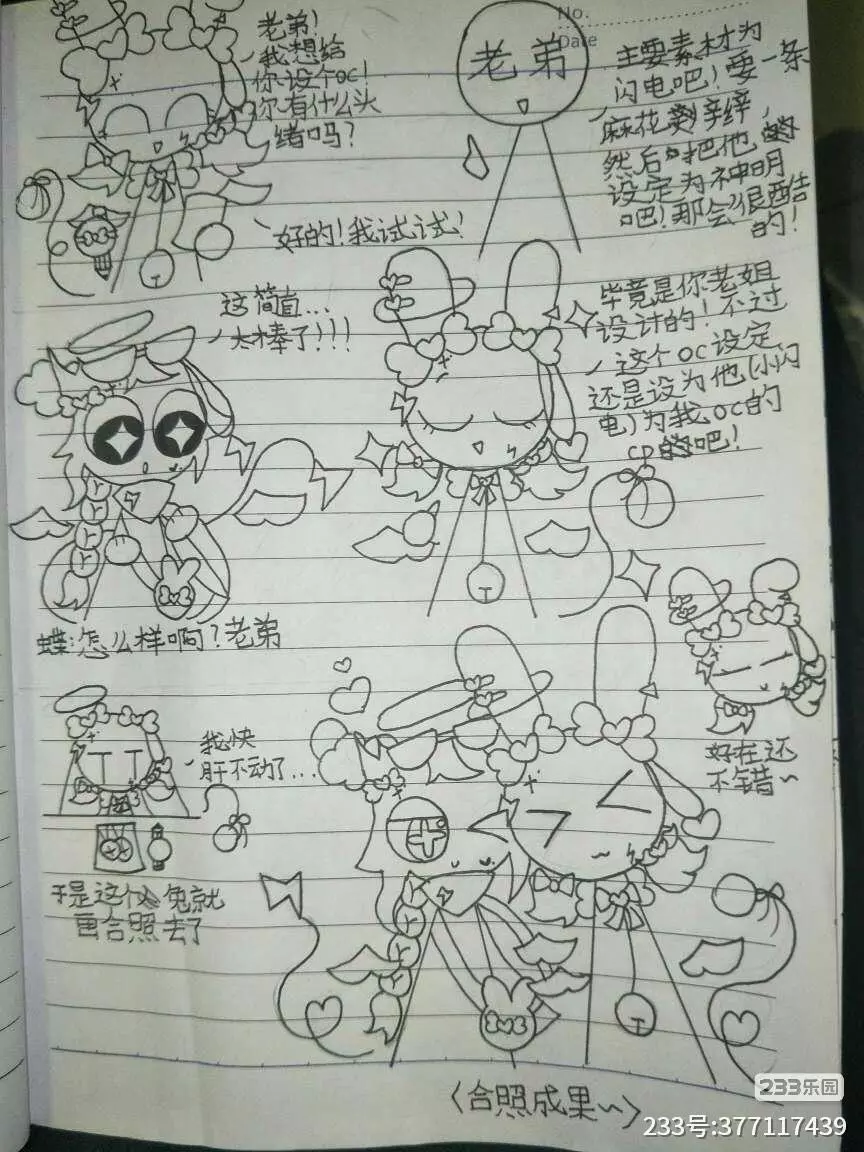 老弟!
我想给
你设个oc!
你有什么头
绪吗?
No.
Date
老弟
主要素材为
闪电吧!要一条
麻花辫
然后把他
设定为神明
吧!那会很酷
的!
好的!我试试!
这简直...
太棒了!!!
毕竟是你老姐
设计的!不过
这个OC设定
还是设为他(小闪
电)为我OC的
CP吧!
蝶:怎么样啊?老弟
我快
肝不动了...
好在还
不错~
于是这个兔就
画合照去了
T
T
T
〈合照成果~〉
233乐园
233号:377117439